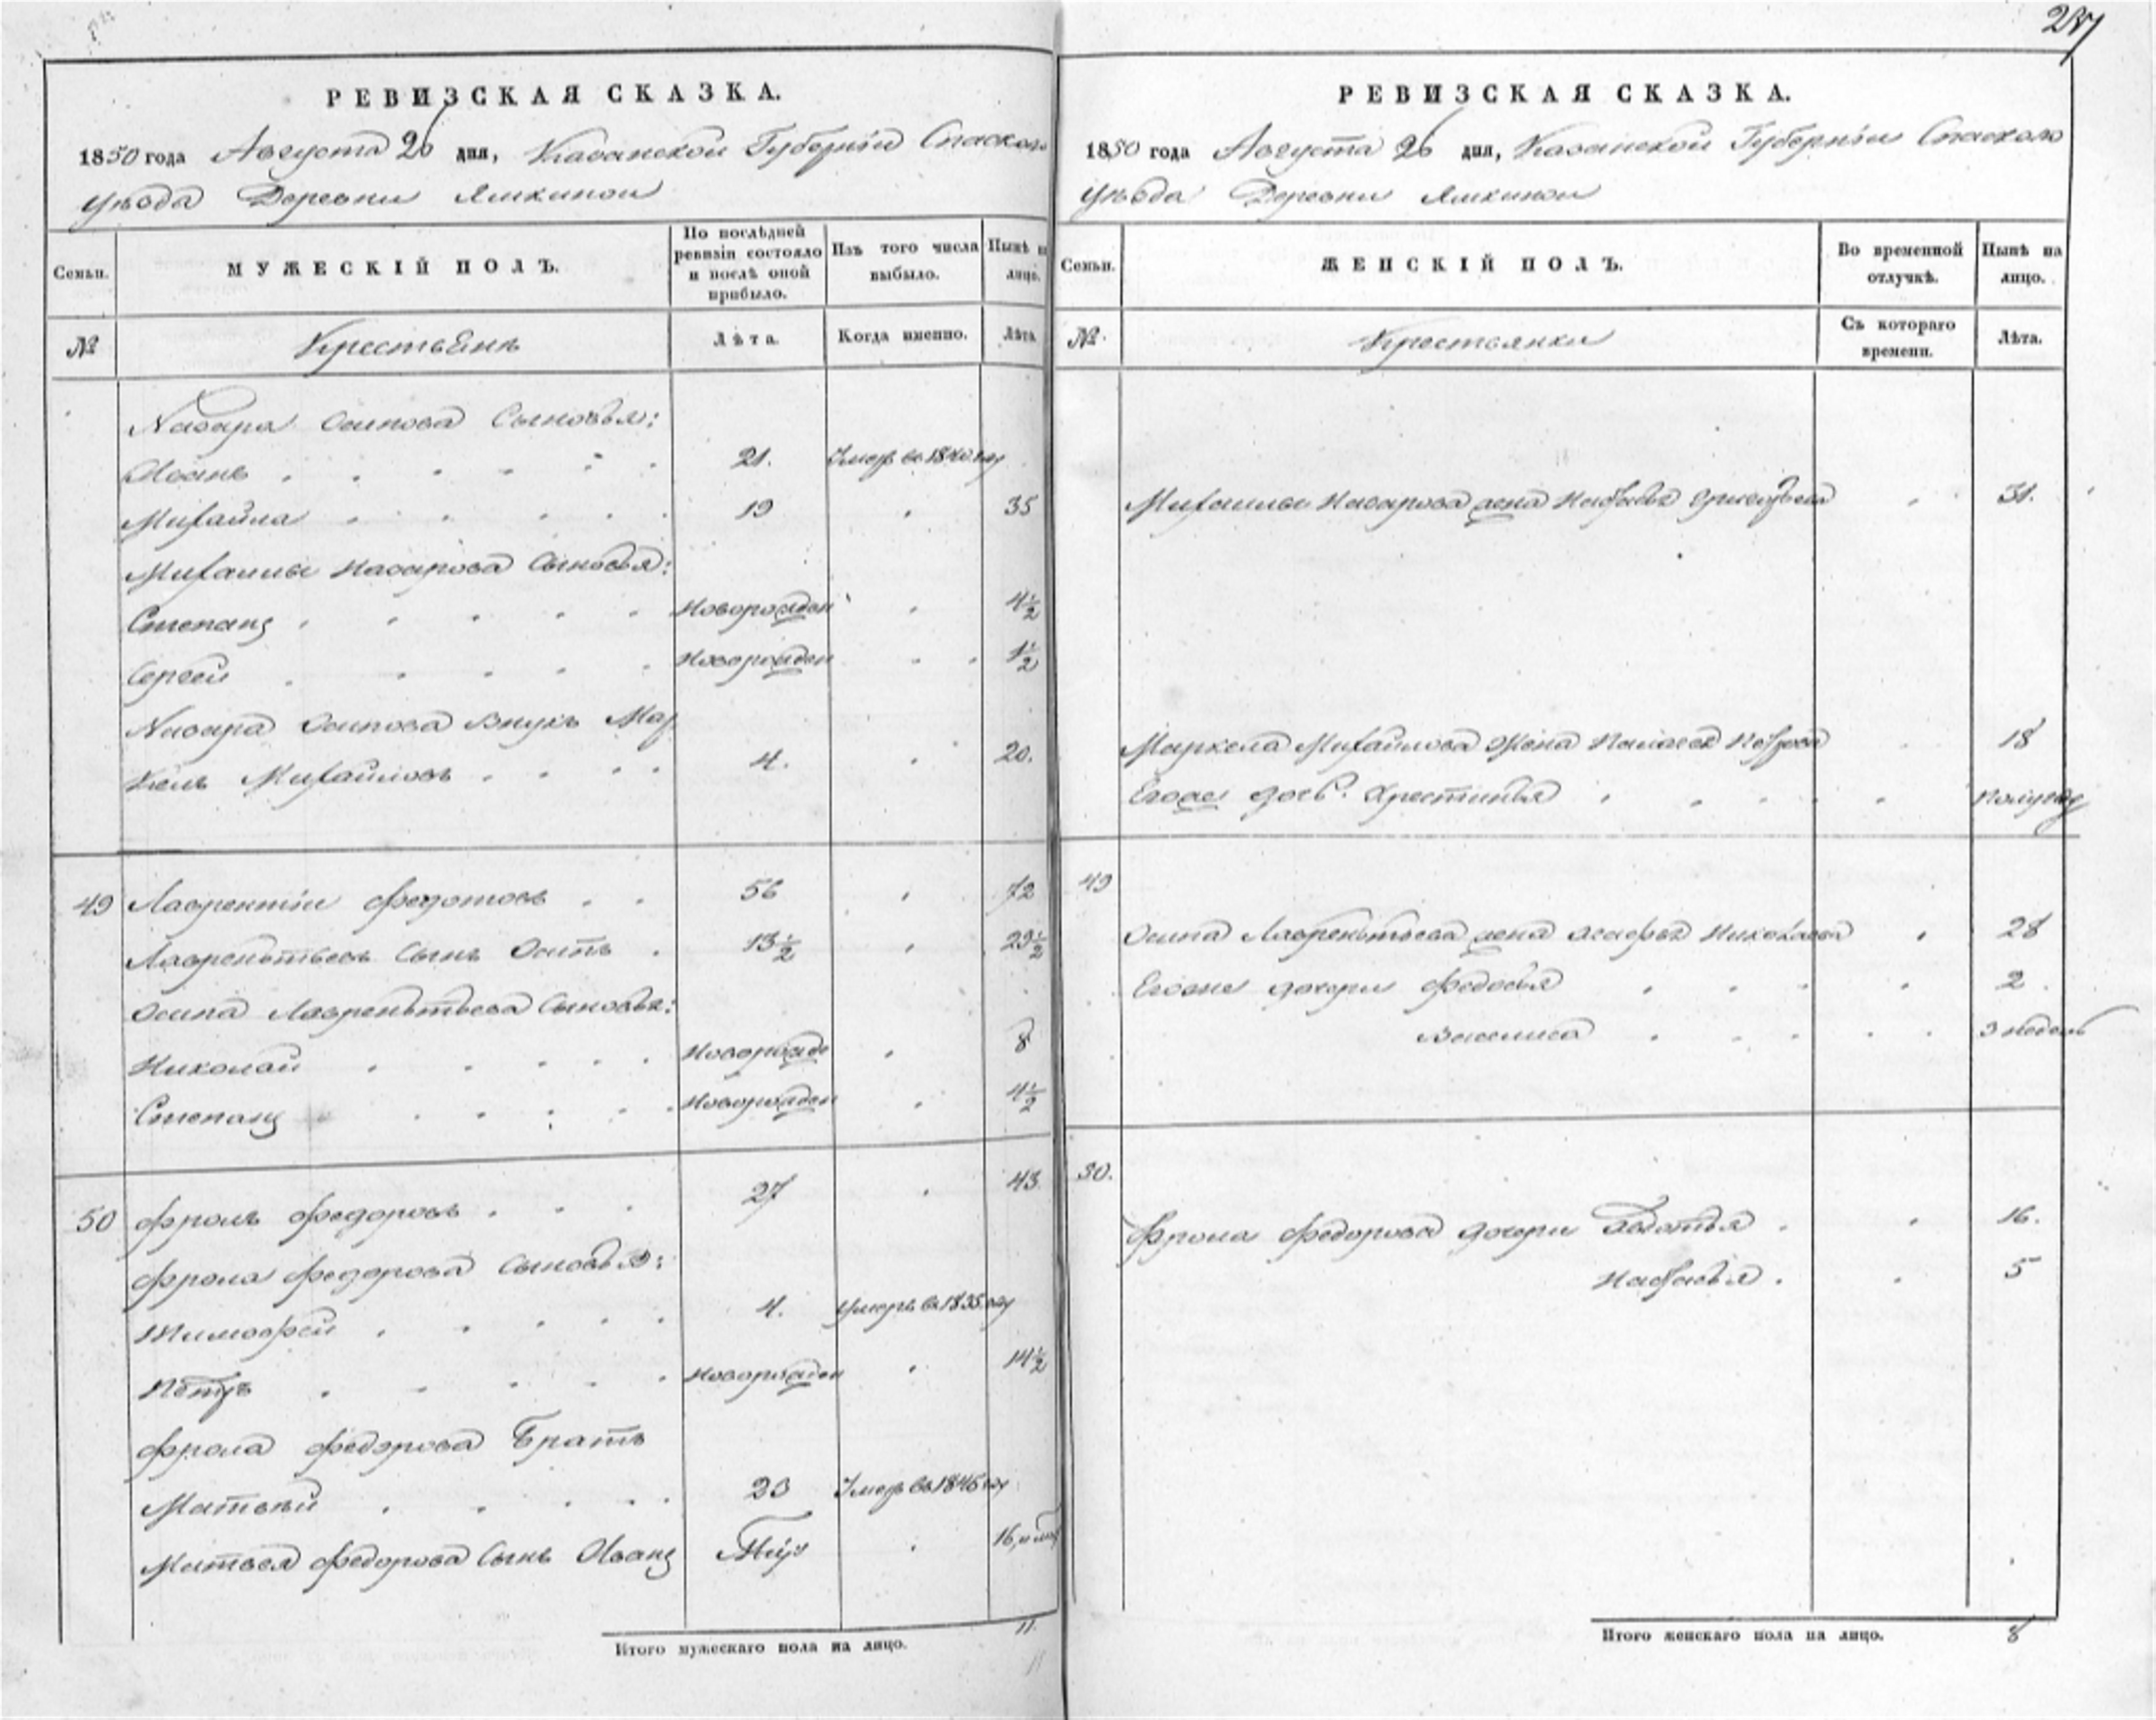 РЕВИЗСКАЯ СКАЗКА.
1850 года Августа 26 дня, Казанской Губернии Спаского
Уѣзда Деревни Ямкиной
Семьи. МУЖЕСКІЙ ПОЛЪ. По послѣдней ревизіи состояло и послѣ оной прибыло. Изъ того числа выбыло. Нынѣ на лицо.
№ Крестьянъ Лѣта. Когда именно. Лѣта.
Назара Осипова Сыновья:
Иванъ 21. Умеръ въ 1840 году
Михайла 19 35
Михайлы Назарова Сыновья:
Степанъ Новорожден 4½
Сергей Новорожден 1½
Назара Осипова Внукъ Мар
келъ Михайловъ 4. 20.
49 Лаврентіи Федотовъ 56 72
Лаврентьевъ Сынъ Осипъ 13½ 29½
Осипа Лаврентьева Сыновья:
Николай Новорожде 8
Степанъ Новорожден 4½
50 Фролъ Федоровъ 27 43
Фрола Федорова Сыновья:
Тимофей 4. Умеръ въ 1835 году
Петръ Новорожден 14½
Фрола Федорова Братъ
Матвѣй 23 Умеръ въ 1846 году
Матвея Федорова Сынъ Иванъ 16
Итого мужескаго пола на лицо. 11.
11
РЕВИЗСКАЯ СКАЗКА.
1850 года Августа 26 дня, Казанской Губерніи Спаского
Уѣзда Деревни Ямкиной
Семьи. ЖЕНСКІЙ ПОЛЪ. Во временной отлучкѣ. Нынѣ на лицо.
№. Крестьянки Съ котораго времени. Лѣта.
Михайлы Назарова жена Настасья Григорьева 31.
Маркела Михайлова Жена Палагея Петрова 18
Егоже дочь Хрестинья Полугоду
49
Осипа Лаврентьева жена Агафья Николаева 28
Егоже дочери Федосья 2
Василиса 3 недель
50.
Фрола Федорова дочери Авдотья 16.
Настасья 5
Итого женскаго пола на лицо. 8